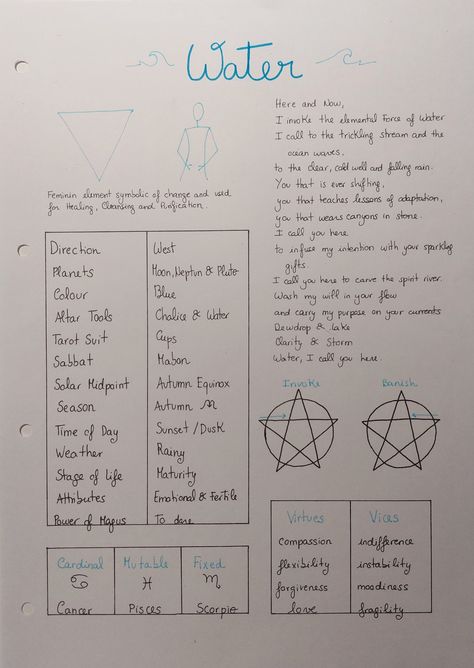 Water
Feminin element symbolic of change and used
for Healing, Cleansing and Purification.
Direction West
Planets Moon, Neptun & Pluto
Colour Blue
Altar Tools Chalice & Water
Tarot Suit Cups
Sabbat Mabon
Solar Midpoint Autumn Equinox
Season Autumn ♏
Time of Day Sunset / Dusk
Weather Rainy
Stage of Life Maturity
Attributes Emotional & Fertile
Power of Magus To dare
Cardinal Mutable Fixed
♋ ♓ ♏
Cancer Pisces Scorpio
Here and Now,
I invoke the elemental Force of Water
I call to the trickling stream and the
ocean waves.
to the clear, cold well and falling rain.
You that is ever shifting,
you that teaches lessons of adaptation,
you that wears canyons in stone.
I call you here
to infuse my intention with your sparkling
gifts.
I call you here to carve the spirit river.
Wash my will in your flow
and carry my purpose on your currents
Dewdrop & Lake
Clarity & Storm
Water, I call you here.
Invoke Banish
Virtues Vices
compassion indifference
flexibility instability
forgiveness moodiness
love fragility